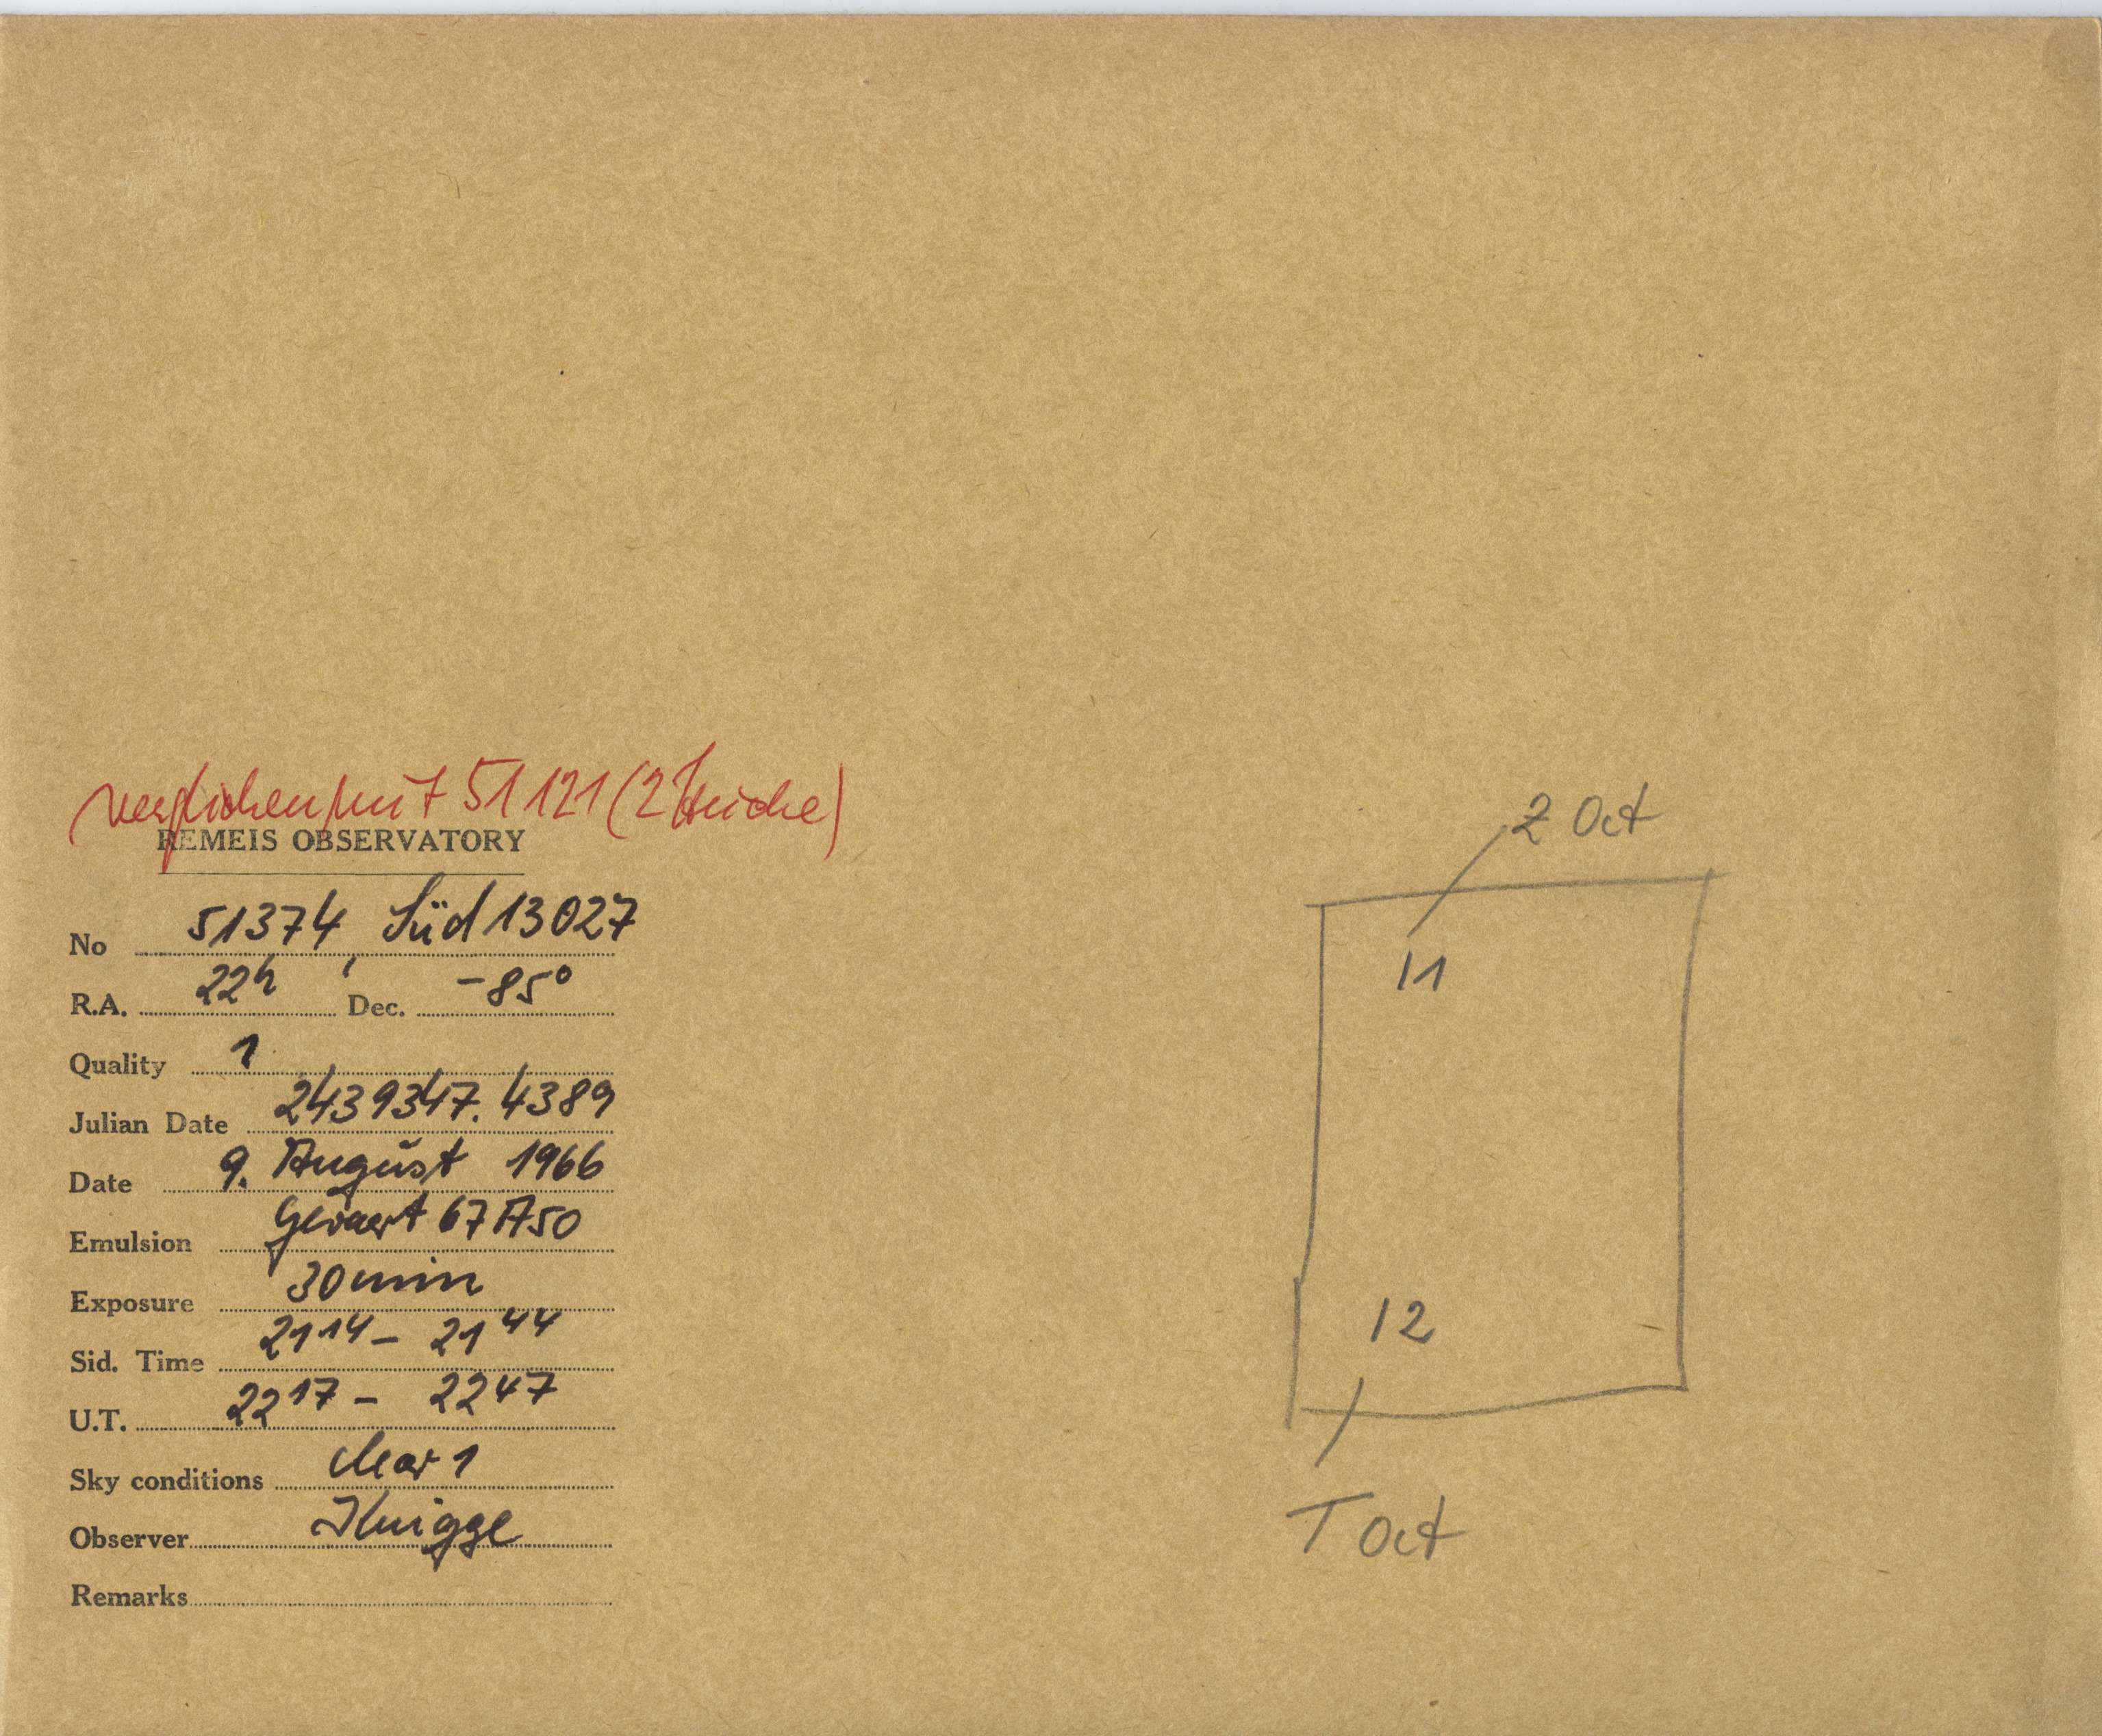 verglichen mit 51121 (2 Striche)
REMEIS OBSERVATORY
No 51374, Süd 13027
R.A. 22h Dec. -85°
Quality 1
Julian Date 2439347.4389
Date 9. August 1966
Emulsion Gevaert 67A50
Exposure 30 min
Sid. Time 21 14 - 21 44
U.T. 22 17 - 22 47
Sky conditions clear 1
Observer Knigge
Remarks
Z Oct
11
12
T Oct